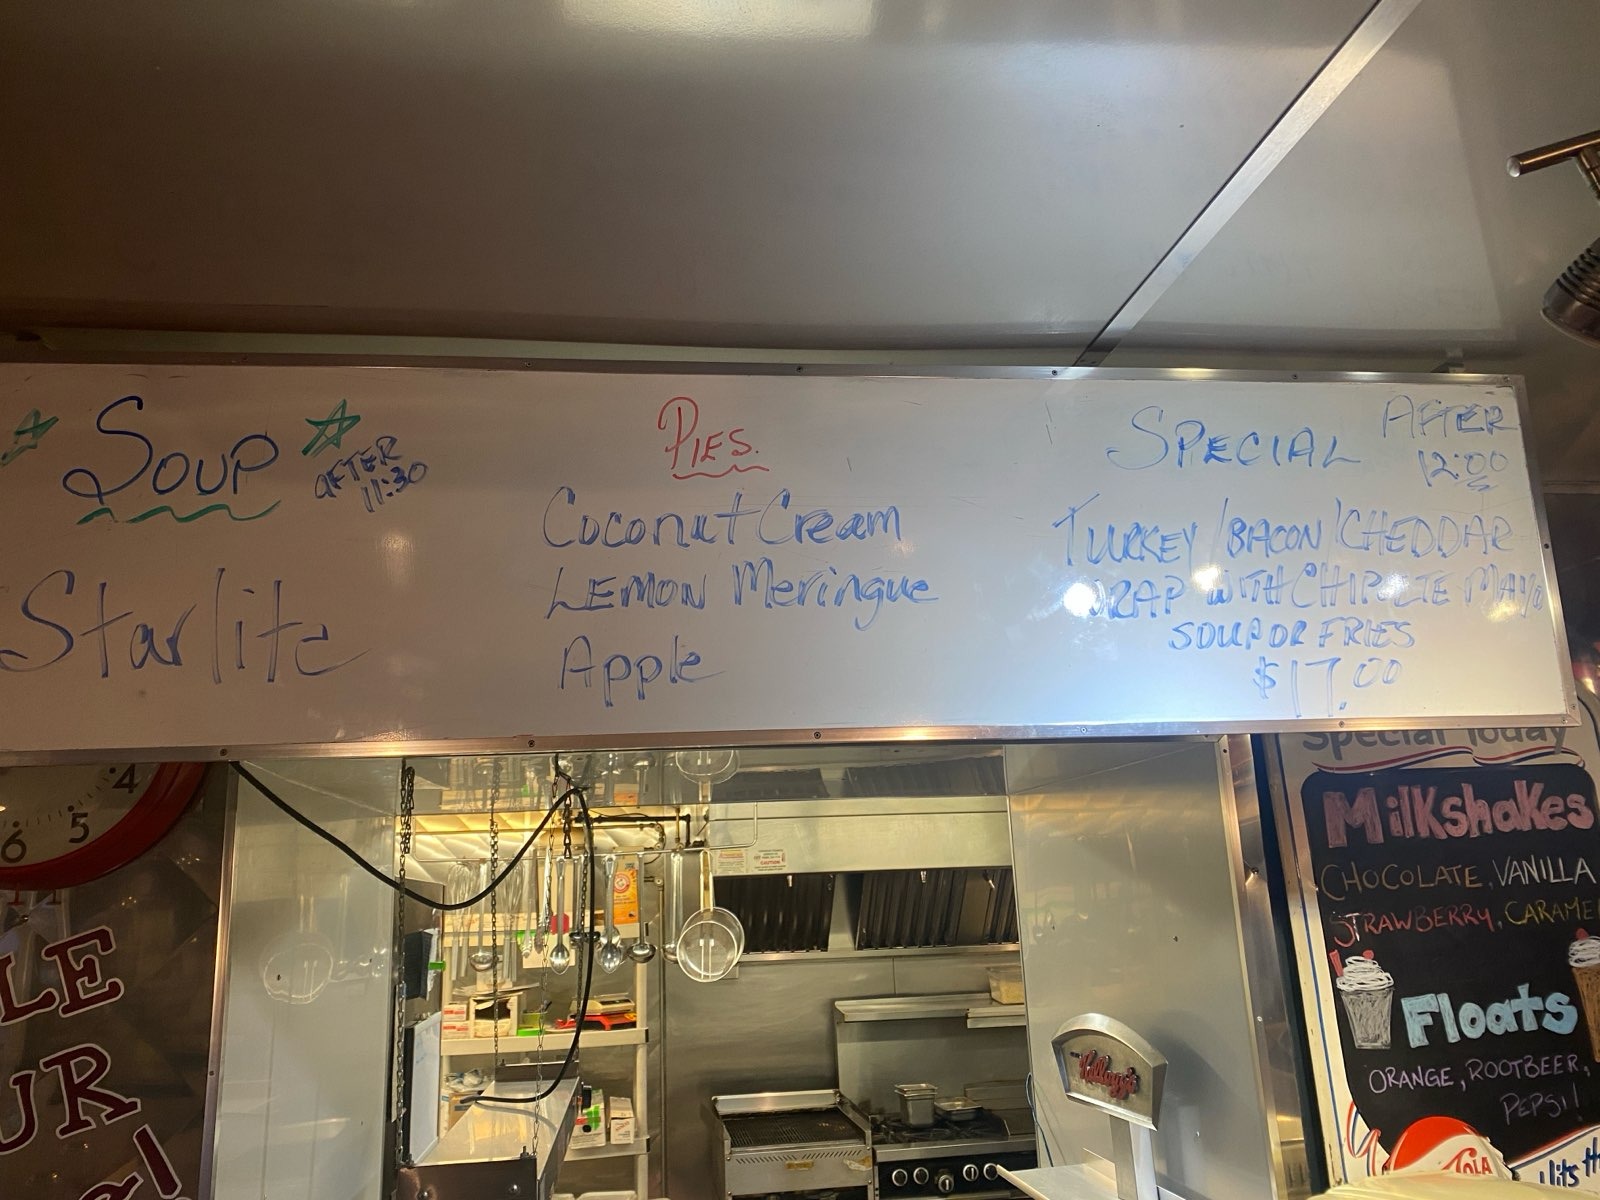 SOUP
AFTER
11:30
Starlite
PIES.
Coconut Cream
LEMON Meringue
Apple
SPECIAL
AFTER
12:00
TURKEY/BACON/CHEDDAR
WRAP WITH CHIPOTLE MAYO
SOUP OR FRIES
$17.00
4
5
6
LE
UR
Special Today
Milkshakes
CHOCOLATE, VANILLA
STRAWBERRY, CARAMEL
Floats
ORANGE, ROOTBEER,
PEPSI!
COLA
Kellogg's
CAUTION